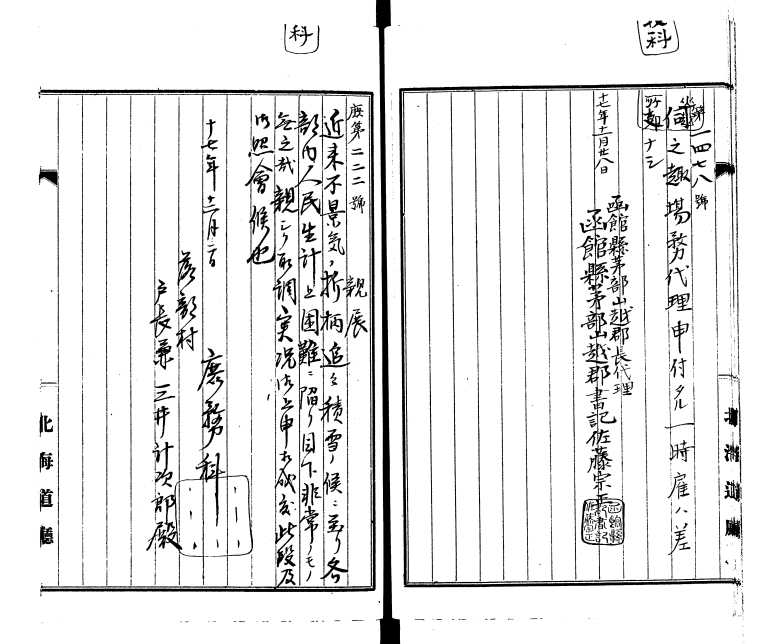 第一四七八號
伺之趣場務代理申付タル一時雇ハ差
十七年十一月廿八日
函館縣茅部山越郡長代理
函館縣茅部山越郡書記佐藤宗
北海道廳
科
庶第二二二號
親展
近来不景気ノ折柄追々積雪ノ候ニ至リ各
部内人民生計上困難ニ陥リ目下非常ノモノ
無之哉親シク取調実況御上申相成度此段及
御照會候也
十七年十二月二日
庶務科
落部村
戸長兼三井計次郎殿
北海道廳